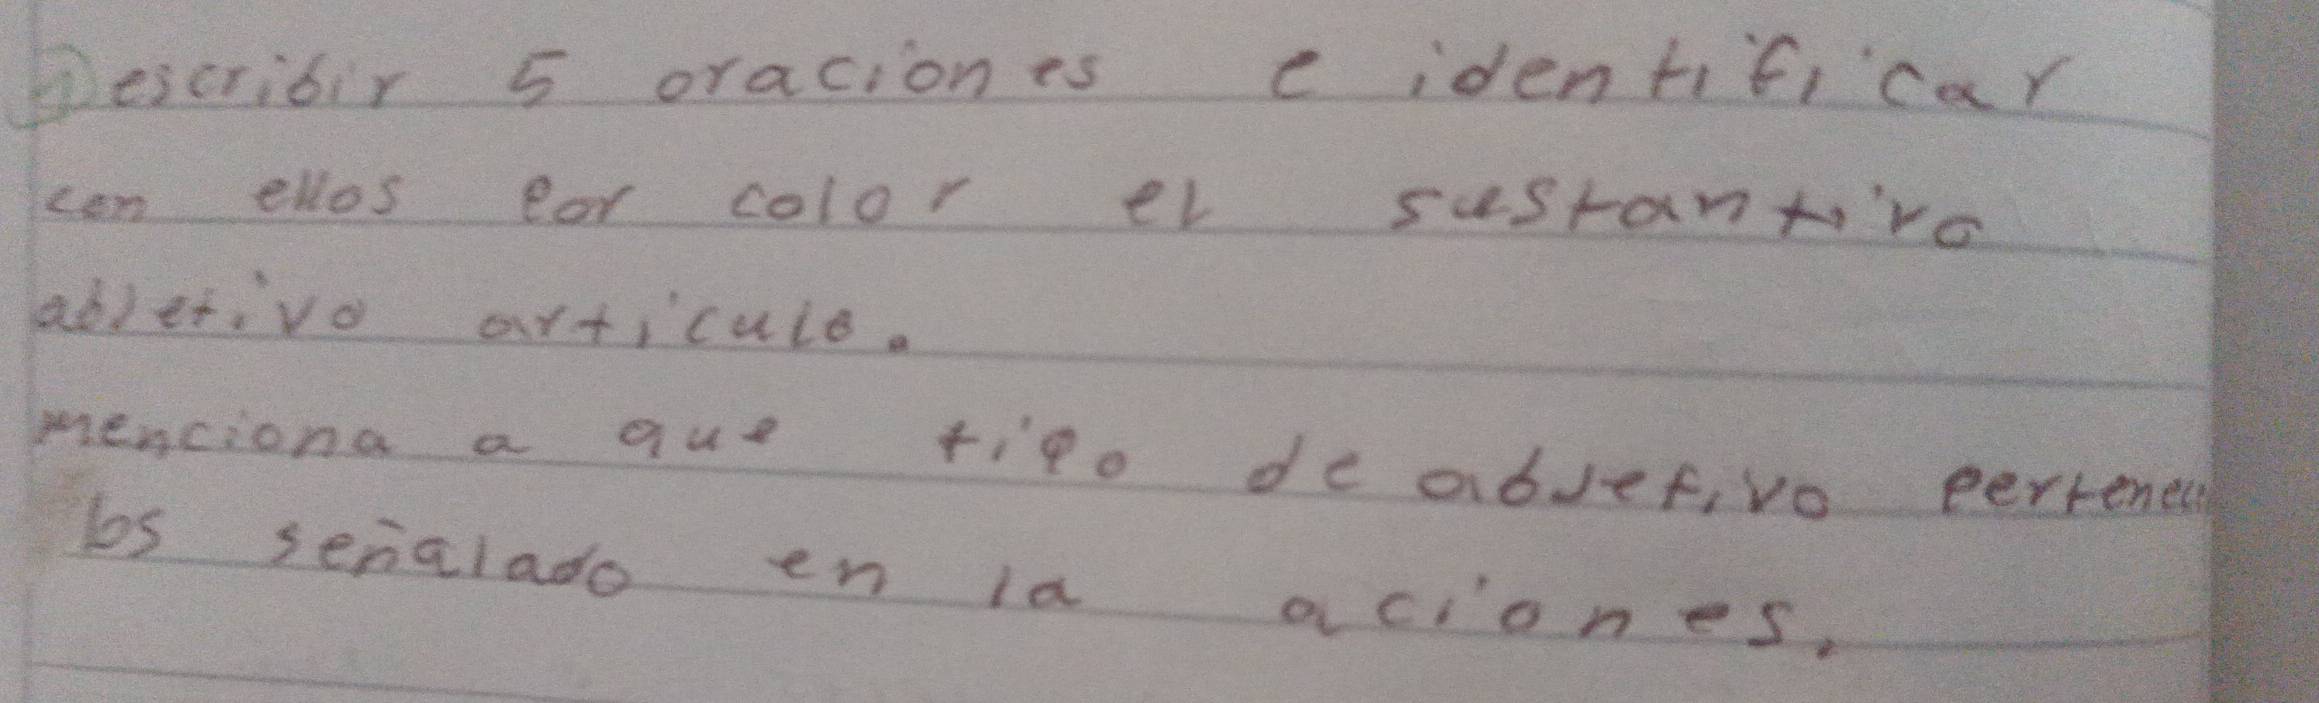 1) escribir 5 oraciones e identificar
con ellos por color el sustantivo
abjetivo articulo.
menciona a que tipo de abjetivo pertenec
los señalado en la aciones.